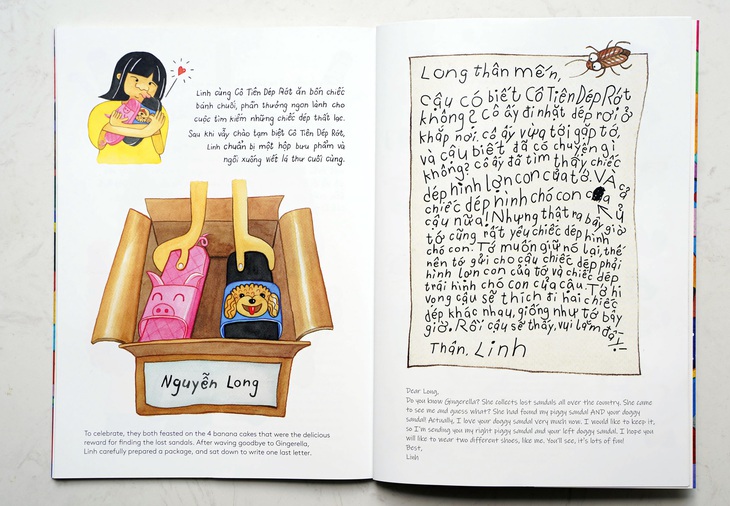 Linh cùng Cô Tiên Dép Rớt ăn bốn chiếc
bánh chuối, phần thưởng ngon lành cho
cuộc tìm kiếm những chiếc dép thất lạc.
Sau khi vẫy chào tạm biệt Cô Tiên Dép Rớt,
Linh chuẩn bị một hộp bưu phẩm và
ngồi xuống viết lá thư cuối cùng.
Nguyễn Long
To celebrate, they both feasted on the 4 banana cakes that were the delicious
reward for finding the lost sandals. After waving goodbye to Gingerella,
Linh carefully prepared a package, and sat down to write one last letter.
Long thân mến,
Cậu có biết Cô Tiên Dép Rớt
không? Cô ấy đi nhặt dép rơi ở
khắp nơi. cô ấy vừa tới gặp tớ,
và cậu biết đã có chuyện gì
không? cô ấy đã tìm thấy chiếc
dép hình lợn con của tớ. VÀ cả
chiếc dép hình chó con của
cậu nữa! Nhưng thật ra bây giờ
tớ cũng rất yêu chiếc dép hình
chó con. Tớ muốn giữ nó lại, thế
nên tớ gửi cho cậu chiếc dép phải
hình lợn con của tớ và chiếc dép
trái hình chó con của cậu. Tớ hi
vọng cậu sẽ thích đi hai chiếc
dép khác nhau, giống như tớ bây
giờ. Rồi cậu sẽ thấy, vui lắm đấy!
Thân, Linh
Dear Long,
Do you know Gingerella? She collects lost sandals all over the country. She came
to see me and guess what? She had found my piggy sandal AND your doggy
sandal! Actually, I love your doggy sandal very much now. I would like to keep it,
so I'm sending you my right piggy sandal and your left doggy sandal. I hope you
will like to wear two different shoes, like me. You'll see, it's lots of fun!
Best,
Linh